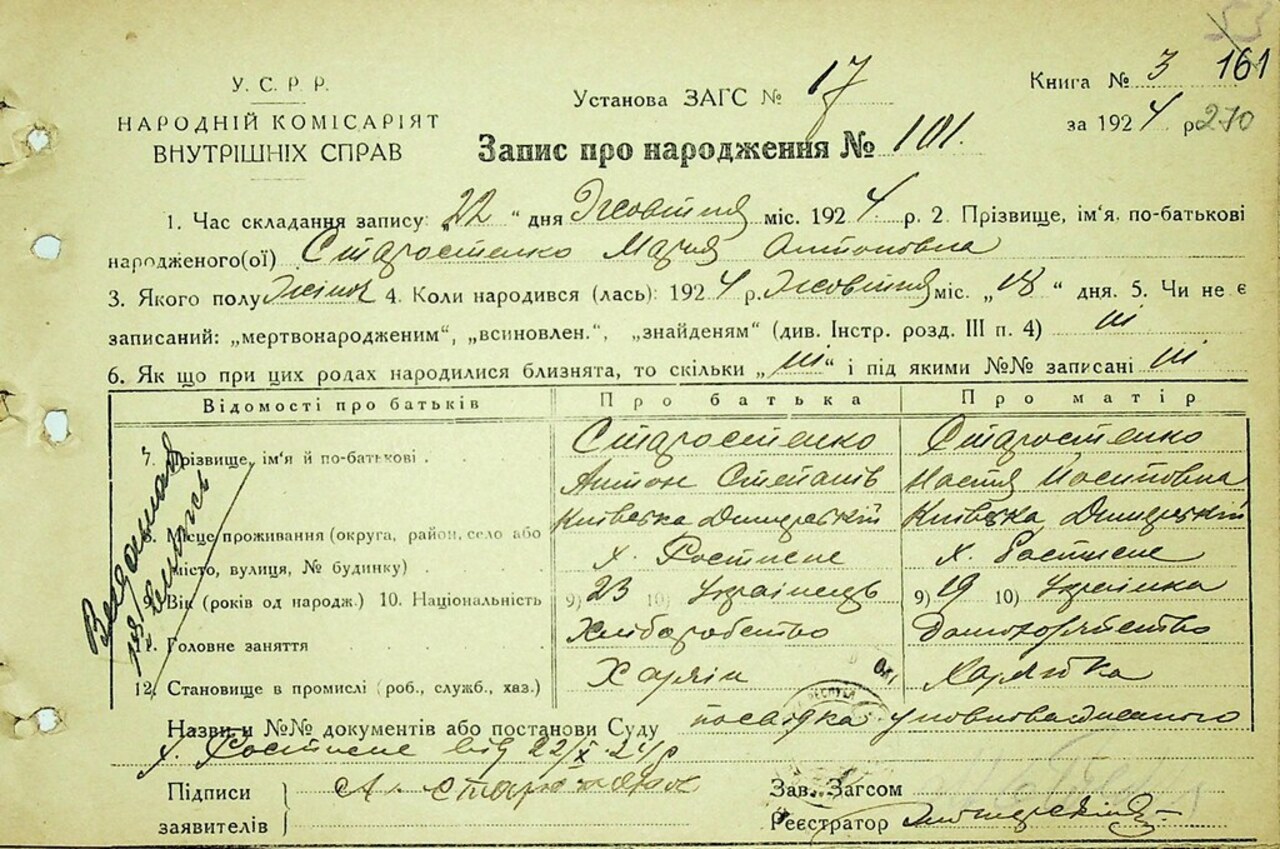 53
У. С. Р. Р.
НАРОДНІЙ КОМІСАРІЯТ
ВНУТРІШНІХ СПРАВ
Установа ЗАГС № 17
Книга № 3 161
за 1924 р. 270
Запис про народження № 101.
1. Час складання запису: „22“ дня Жовтня міс. 1924. р. 2. Прізвище, ім'я, по-батькові
народженого(ої) Старостенко Мария Антоновна
3. Якого полу Жіноч 4. Коли народився (лась): 1924 р. Жовтня міс. „18“ дня. 5. Чи не є
записаний: „мертвонародженим“, „всиновлен.“, „знайденям“ (див. Інстр. розд. III п. 4) ні
6. Як що при цих родах народилися близнята, то скільки „ні“ і під якими №№ записані ні
Відомості про батьків Про батька Про матір
7. Прізвище, ім'я й по-батькові Старостенко Старостенко
Антон Степанів Настя Иосиповна
8. Місце проживання (округа, район, село або Київська Димерський Київська Димерський
місто, вулиця, № будинку) х. Ростисне х. Ростисне
9. Вік (років од народж.) 10. Національність 9) 23 10) Українець 9) 19 10) Українка
11. Головне заняття Хліборобство Домохозяйство
12. Становище в промислі (роб., служб., хаз.) Хазяін Хазяйка
Назви и №№ документів або постанови Суду посвідка уповноваженого
х. Ростисне від 22/X 24 р
Підписи
заявителів
А. Старостенок
Зав. Загсом
Реєстратор